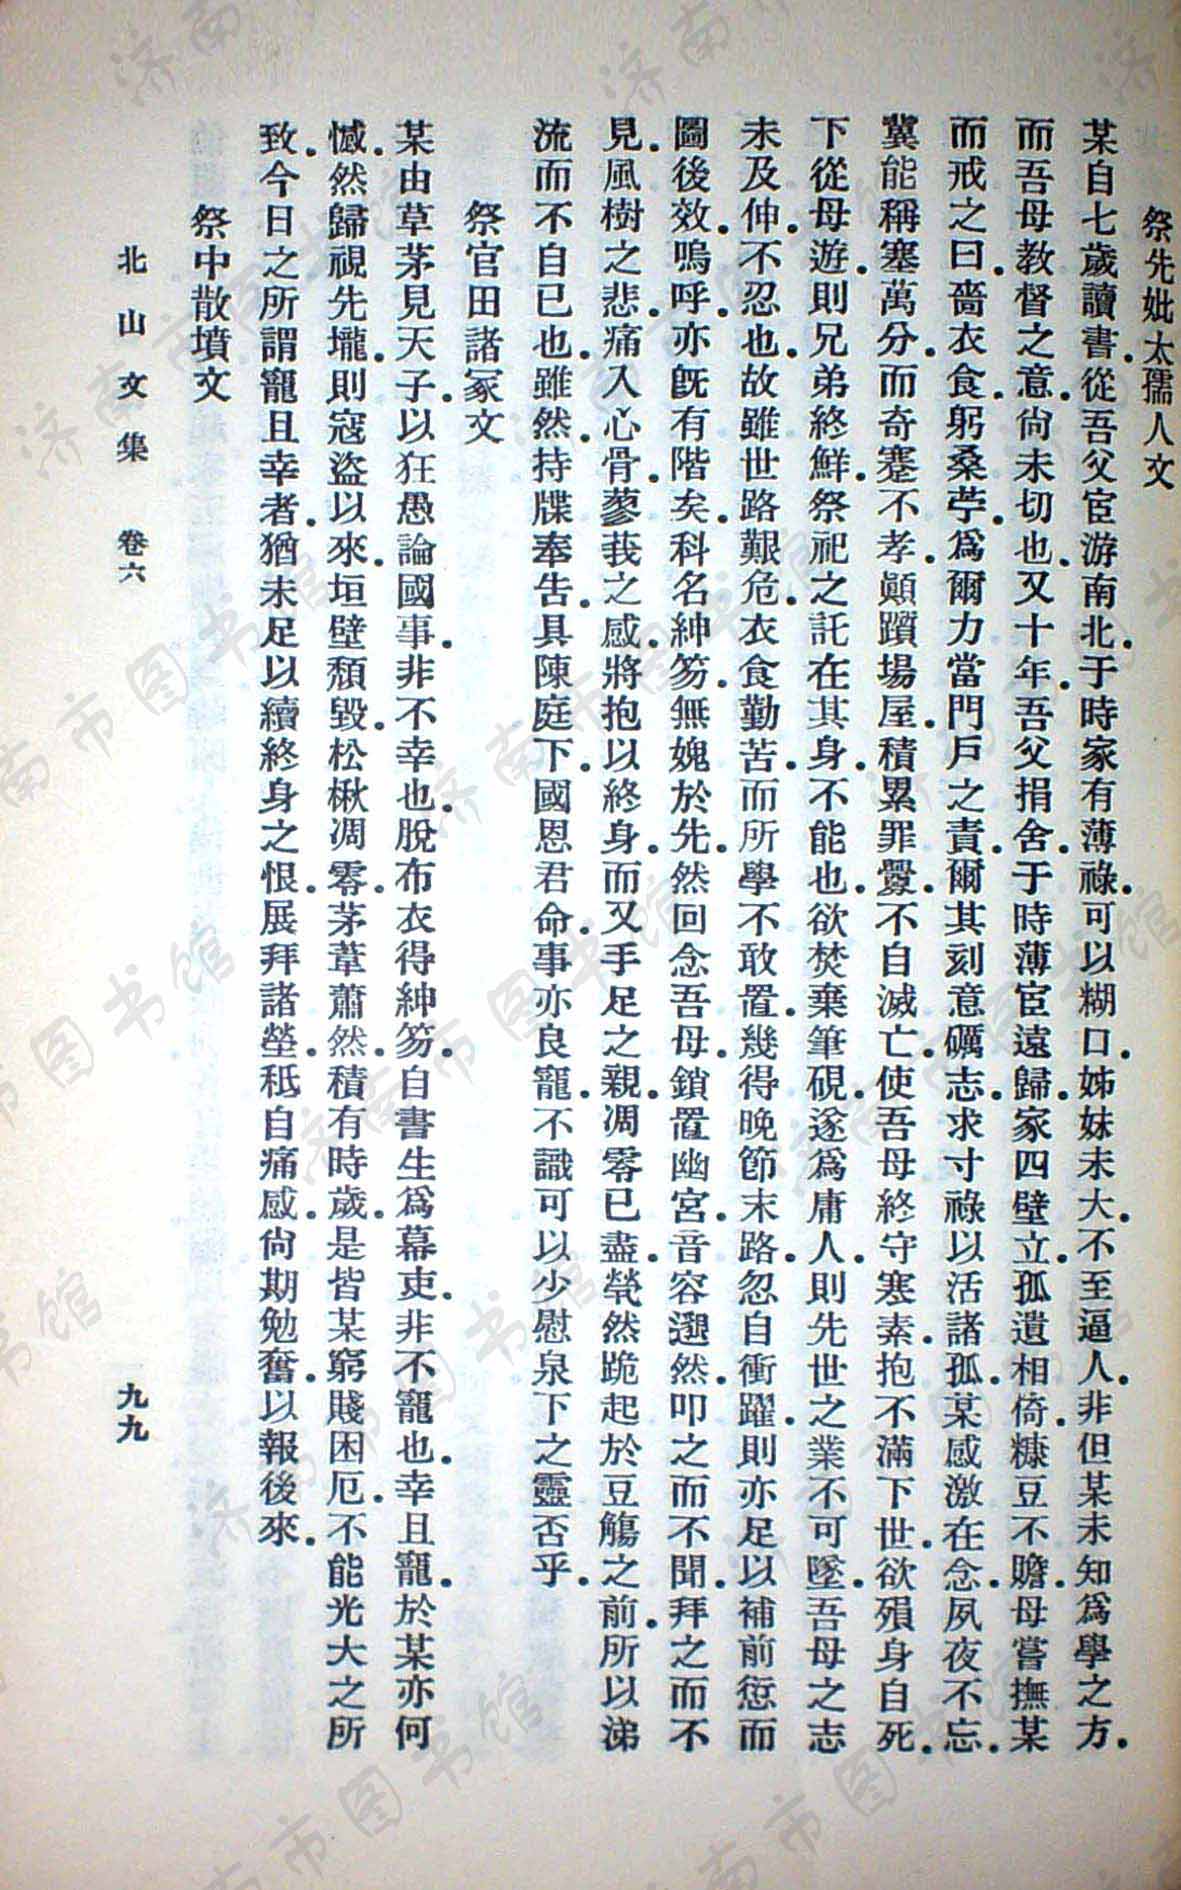 祭先妣太孺人文
某自七歲讀書.從吾父宦游南北.于時家有薄祿.可以糊口.姊妹未大.不至逼人.非但某未知爲學之方.
而吾母教督之意.尙未切也.又十年.吾父捐舍.于時薄宦遠歸.家四壁立.孤遺相倚.糠豆不贍.母嘗撫某
而戒之曰.嗇衣食.躬桑苧.爲爾力當門戶之責.爾其刻意礪志.求寸祿以活諸孤.某感激在念.夙夜不忘.
冀能稱塞萬分.而奇蹇不孝.顚躓場屋.積累罪釁.不自滅亡.使吾母終守寒素.抱不滿下世.欲殞身自死.
下從母遊.則兄弟終鮮.祭祀之託在其身.不能也.欲焚棄筆硯.遂爲庸人.則先世之業不可墜.吾母之志
未及伸.不忍也.故雖世路艱危.衣食勤苦.而所學不敢置.幾得晚節末路.忽自衝躍.則亦足以補前愆而
圖後效.嗚呼.亦旣有階矣.科名紳笏.無媿於先.然回念吾母.鎖置幽宮.音容邈然.叩之而不聞.拜之而不
見.風樹之悲.痛入心骨.蓼莪之感.將抱以終身.而又手足之親.凋零已盡.煢然跪起於豆觴之前.所以涕
流而不自已也.雖然.持牒奉告.具陳庭下.國恩君命.事亦良寵.不識可以少慰泉下之靈否乎.
祭官田諸冢文
某由草茅見天子.以狂愚論國事.非不幸也.脫布衣得紳笏.自書生爲幕吏.非不寵也.幸且寵.於某亦何
憾.然歸視先壠.則寇盜以來.垣壁頹毀.松楸凋零.茅葦蕭然.積有時歲.是皆某窮賤困厄.不能光大之所
致.今日之所謂寵且幸者.猶未足以續終身之恨.展拜諸塋.秪自痛感.尙期勉奮.以報後來.
祭中散墳文
北山文集 卷六
九九
济南市图书馆